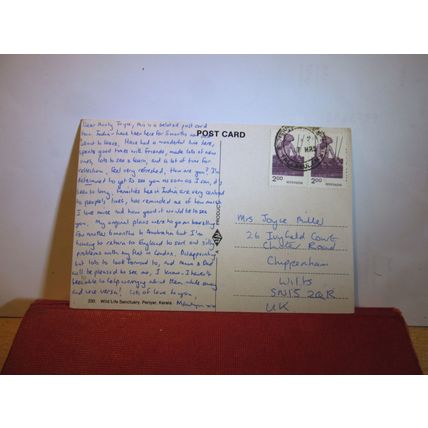 POST CARD
Dear Aunty Joyce, this is a belated post card
from India - have been here for 5 months now
about to leave. Have had a wonderful time here,
spent good times with friends, made lots of new
ones, lots to see & learn, and a lot of time for
reflection, feel very refreshed. How are you? I'm
determined to get to see you as soon as I can, it's
been so long. Families here in India are very central
to people's lives, has reminded me of how much
I love mine and how good it would be to see
you. My original plans were to go on travelling
for another 6 months in Australia but I'm
having to return to England to sort out silly
problems with my flat in London. Disappointing
but lots to look forward to, and Mum & Dad
will be pleased to see me, I know. I hate to
been able to help worrying about them while away
and vice versa! Lots of love to you,
xx
230. Wild Life Sanctuary, Periyar, Kerala.
PRODUCT
2.00
2.00
Mrs Joyce
26 Court
Road
Chippenham
Wilts
SN15 2QR
UK